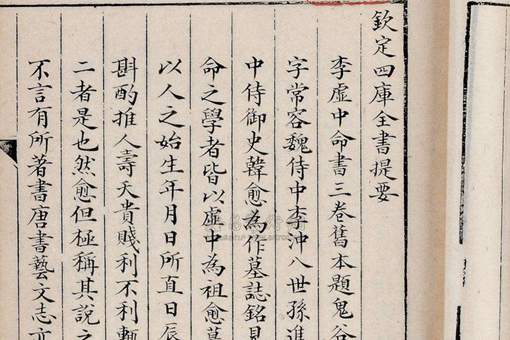 欽定四庫全書提要
李虛中命書三卷舊本題鬼谷
字常容魏侍中李沖八世孫進
中侍御史韓愈為作墓誌銘見
命之學者皆以虛中為祖愈墓
以人之始生年月日所直日辰
斟酌推人壽夭貴賤利不利輒
二者是也然愈但極稱其說之
不言有所著書唐書藝文志亦